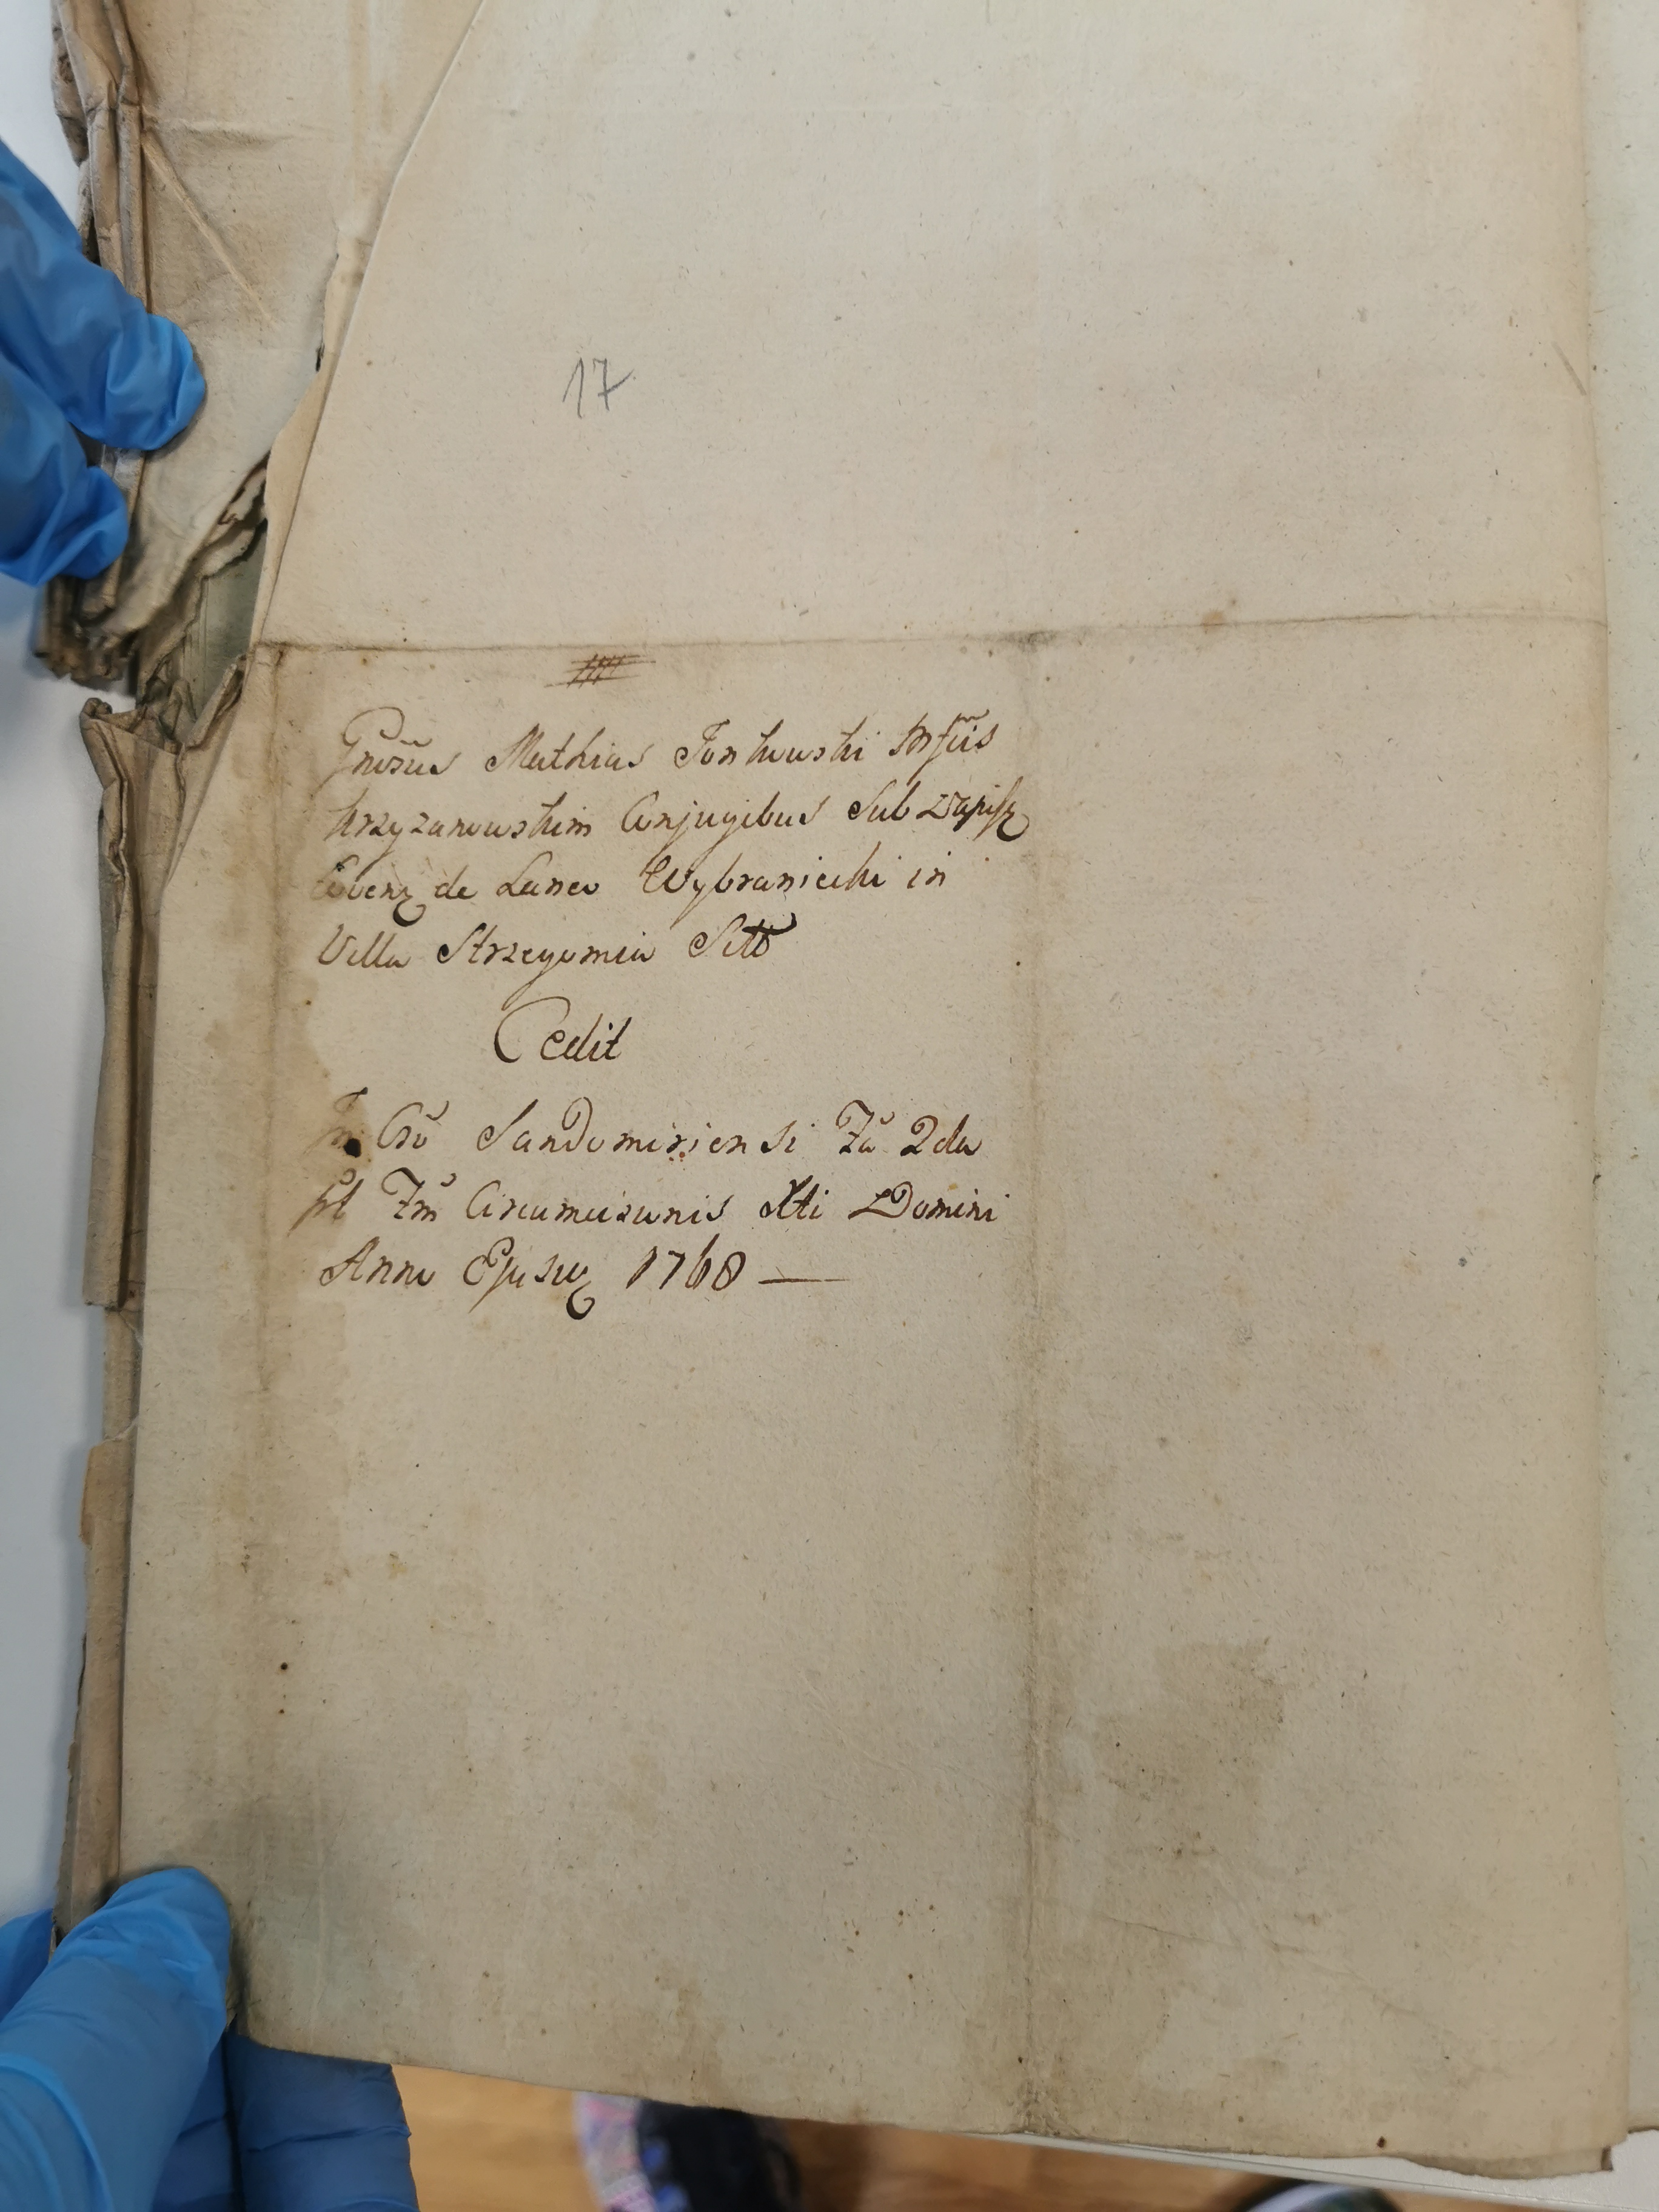 17
Gnosus Mathias Jonkowski Mfcis
Krzyzanowskim Conjugibus Sub
de Laneo Wybraniecki in
Villa Strzegomia Sitt
Cedit
In Cro Sandomiriensi Fa 2da
pt Fm Circumcisionis Xti Domini
Anno Ejusq 1768 —